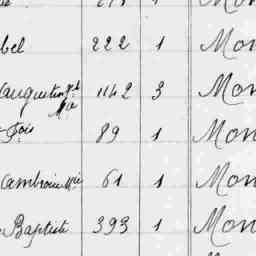 bel 222 1 Mon
augustin 1142 3 Mon
fois 89 1 Mon
Cambroin 61 1 Mon
Baptiste 393 1 Mon